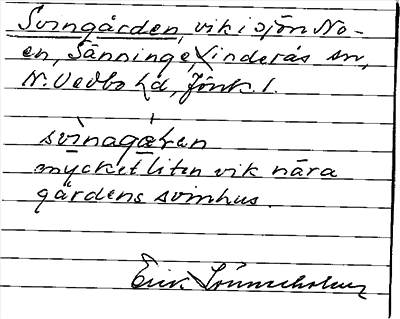 Svingården, vik i sjön No-
en, Sänninge, Linderås sn,
N. Vedbo hd, Jönk. l.
svìnagæ̀ḷen
mycket liten vik nära
gårdens svinhus.
Erik